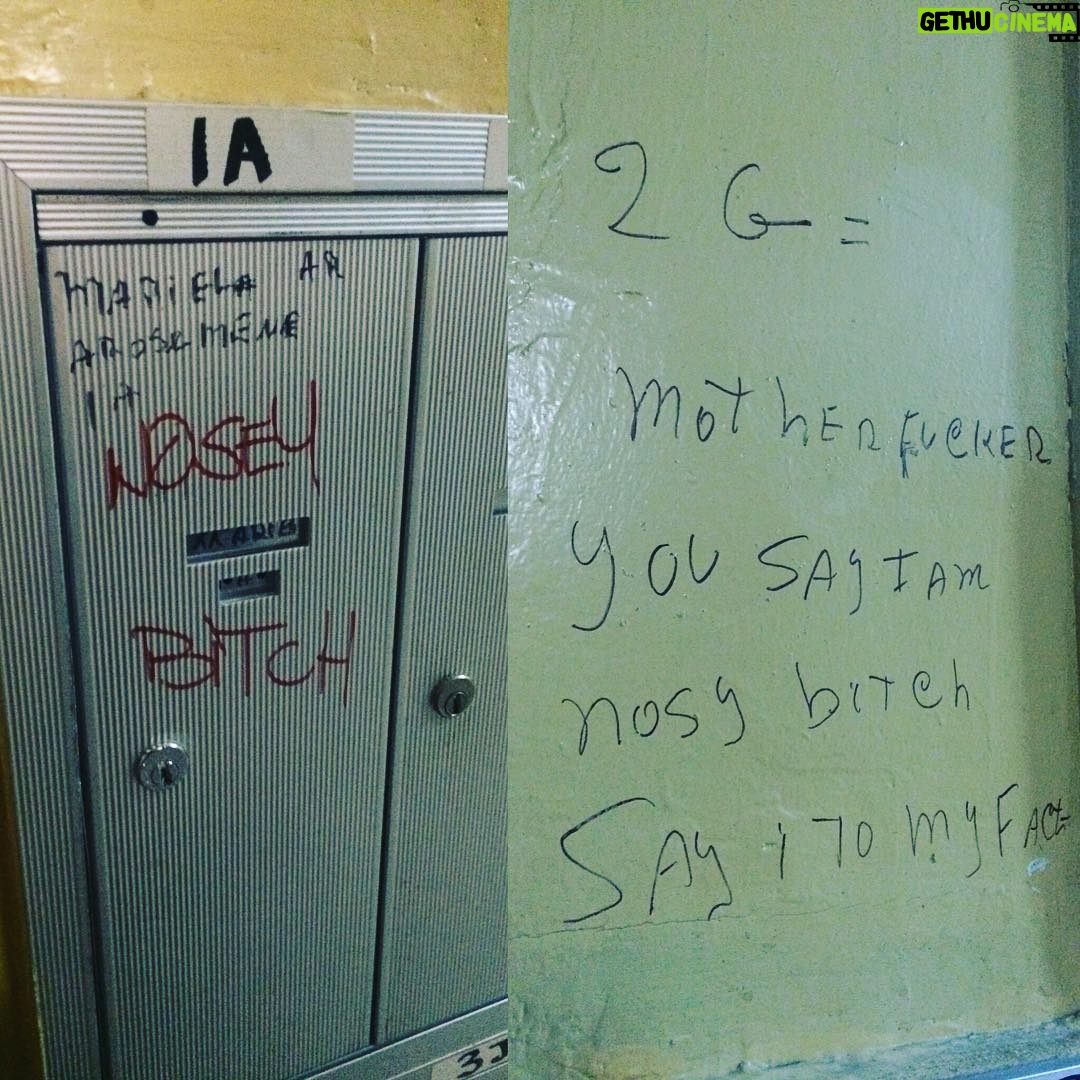 GETHUCINEMA
1A
MARIELA AR
AROSEMENE
1A
NOSEY
BITCH
3J
2 G =
MOTHERFUCKER
YOU SAY I AM
NOSY bITCh
SAY i TO MY FACE